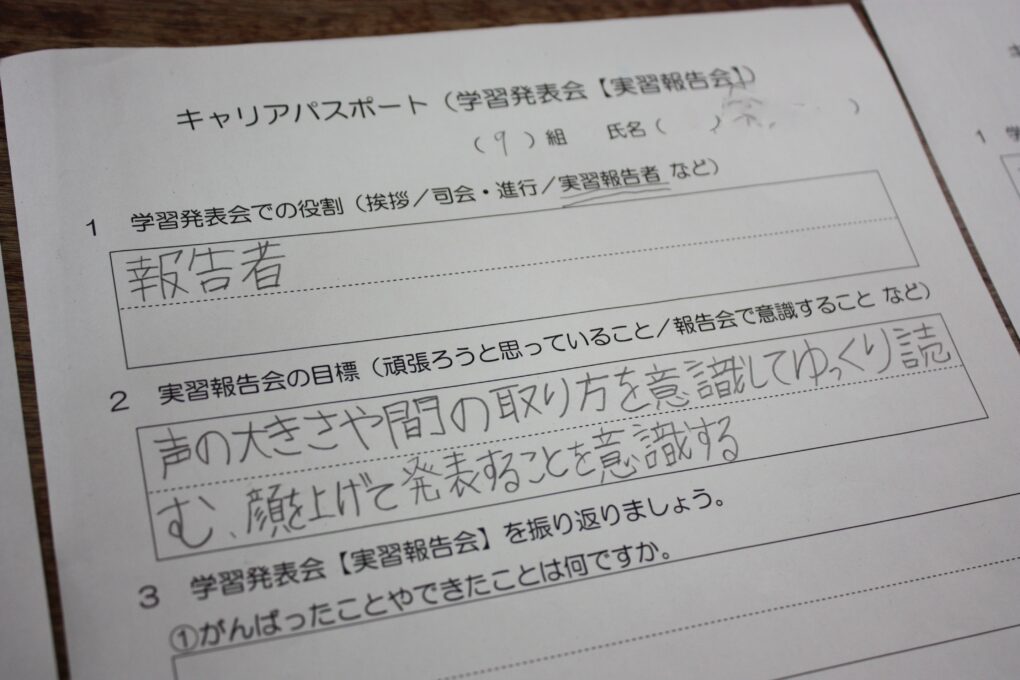 キャリアパスポート（学習発表会【実習報告会】）
（ 9 ）組　氏名（　　　）
1　学習発表会での役割（挨拶／司会・進行／実習報告者 など）
報告者
2　実習報告会の目標（頑張ろうと思っていること／報告会で意識すること など）
声の大きさや間の取り方を意識してゆっくり読
む、顔を上げて発表することを意識する
3　学習発表会【実習報告会】を振り返りましょう。
①がんばったことやできたことは何ですか。
1　学